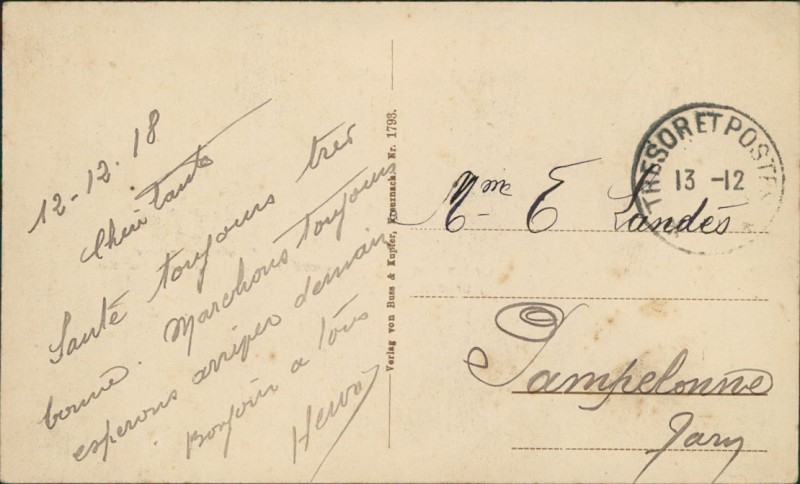 12-12.18
Chère tante
Santé toujours très
bonne. Marchons toujours
esperons arriver demain
Bonjour a tous
Hervé
Verlag von Buss & Kupfer, Kreuznach, Nr. 1793.
TRESOR ET POSTES
13 -12
Mme E Landès
Pampelonne
Tarn